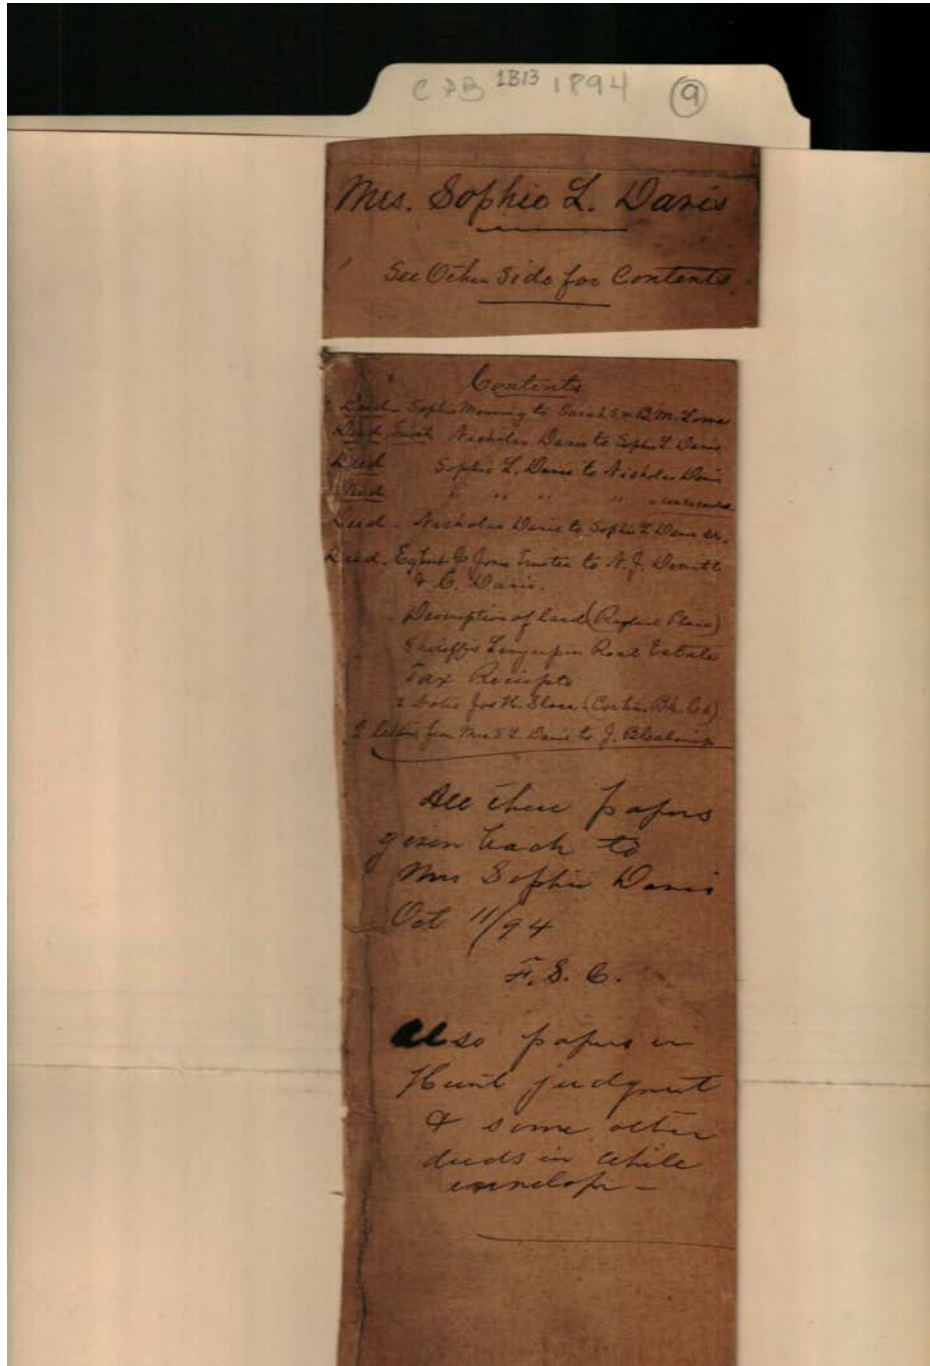 CAB 1B13 1894 9
Mrs. Sophie L. Davis
See Other Side for Contents.
Contents
Deed - Sophie Manning to Sarah S & B.M. Lowe
Deed Trust Nicholas Davis to Sophie L Davis
Deed Sophie L. Davis to Nicholas Davis
Deed " " " "
Deed - Nicholas Davis to Sophie L Davis
Deed - Egbert J Jones Trustee to N. J.
& C. Davis.
Description of land ( Place)
Sheriff's Real Estate
Tax Receipts
2 Notes Jos H. Sloss
2 letters from Mrs S L. Davis to J.
All these papers
given back to
Mrs Sophie Davis
Oct 11/94
F. S. C.
Also papers in
Hunt judgmt
& some other
deeds in while
envelope -